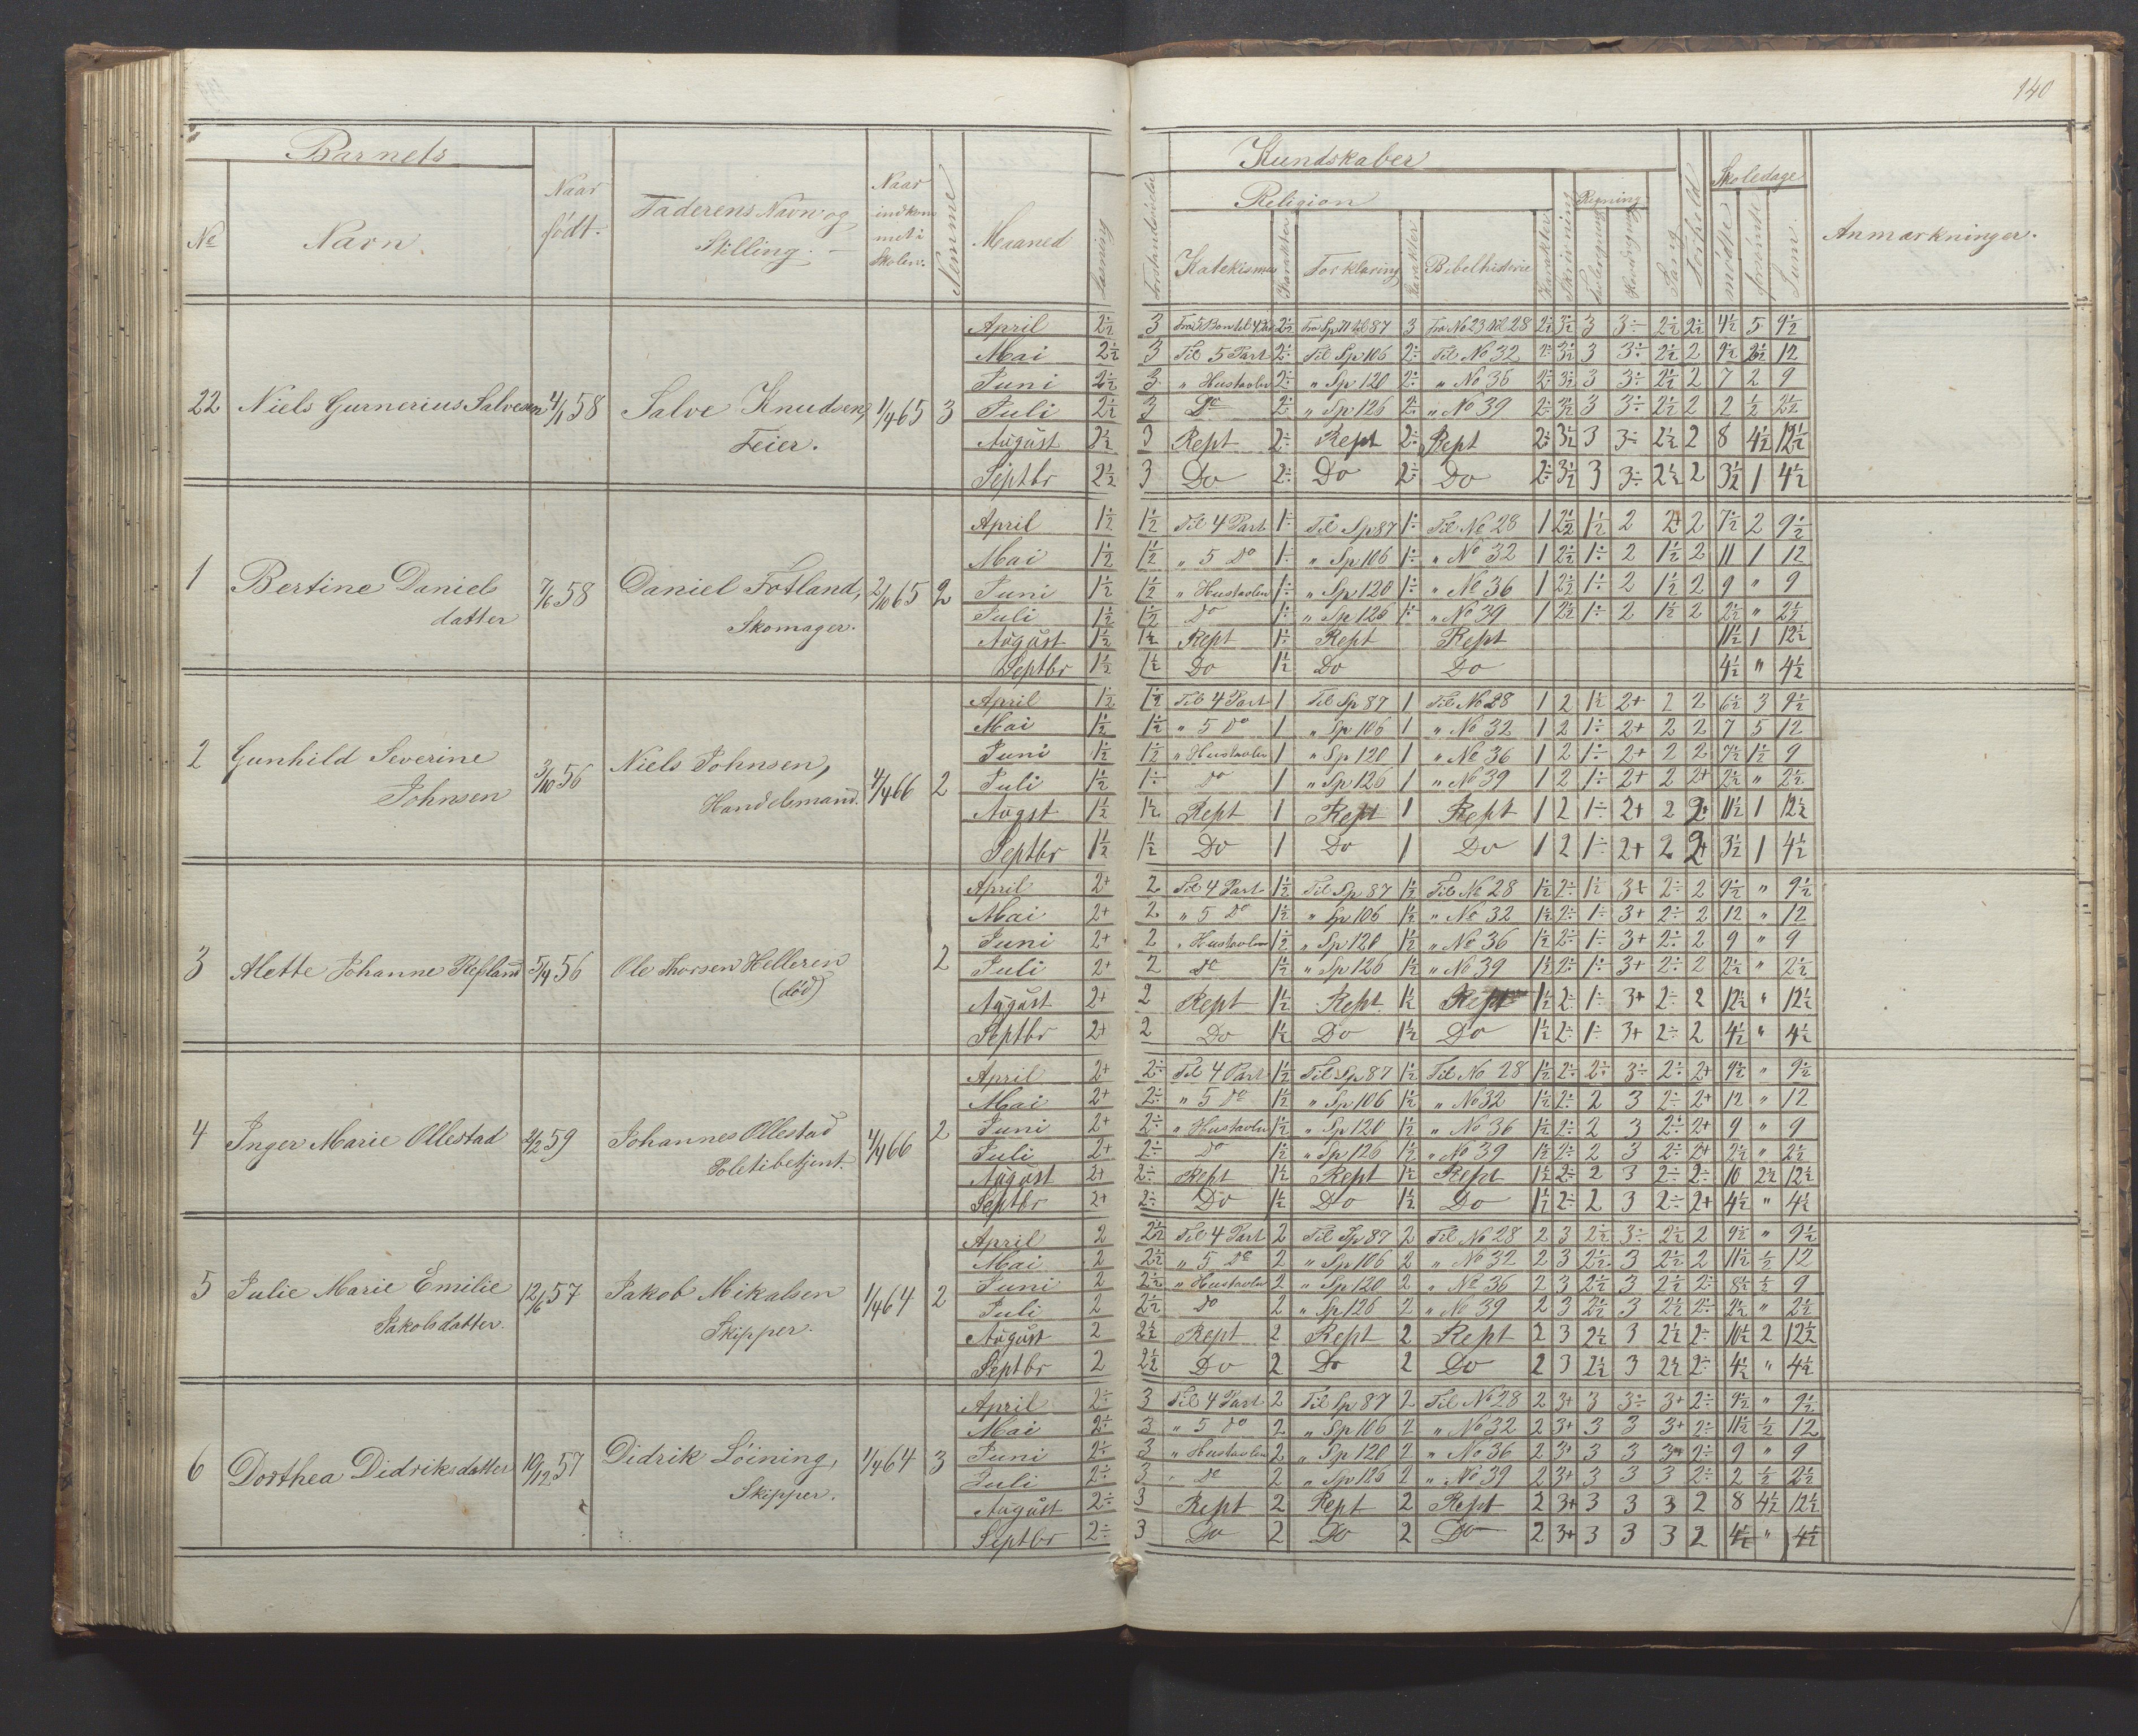 140
Barnets
Kundskaber
Skoledage
№
Navn.
Naar født.
Faderens Navn og Stilling. –
Naar indkommet i Skolen.
Nemme
Maaned
Læsning
Forstandsøvelse
Religion
Katekismus
Karakter
Forklaring
Karakter
Bibelhistorie
Karakter
Skrivning
Regning
Tavleregning
Hovedregning
Sang
Forhold
mødte
forsømte
Sum.
Anmærkninger.
22 Niels Gunnerius Salvesen 4/1 58 Salve Knudsen, Feier. 1/4 65 3
April 2½ 3 Fra 5 Bøn til 4 Part 2½ Fra Sp 71 til 87 3 Fra No 23 til 28 2½ 3½ 3 3÷ 2½ 2½ 4½ 5 9½
Mai 2½ 3 Til 5 Part 2÷ Til Sp 106 2÷ Til No 32 2÷ 3½ 3 3÷ 2½ 2 9½ 2½ 12
Juni 2½ 3 " Hustavlen 2÷ " Sp 120 2÷ " No 36 2÷ 3½ 3 3÷ 2½ 2 7 2 9
Juli 2½ 3 Do 2÷ " Sp 126 2÷ " No 39 2÷ 3½ 3 3÷ 2½ 2 2 ½ 2½
August 2½ 3 Rept 2÷ Rept 2÷ Rept 2÷ 3½ 3 3÷ 2½ 2 8 4½ 12½
Septbr 2½ 3 Do 2÷ Do 2÷ Do 2÷ 3½ 3 3÷ 2½ 2 3½ 1 4½
1 Bertine Daniels datter 7/6 58 Daniel Fotland, Skomager. 2/10 65 2
April 1½ 1½ Til 4 Part 1÷ Til Sp 87 1÷ Til No 28 1 2½ 1½ 2 2+ 2 7½ 2 9½
Mai 1½ 1½ " 5 Do 1÷ " Sp 106 1÷ " No 32 1 2½ 1÷ 2 1½ 2 11 1 12
Juni 1½ 1½ " Hustavlen 1÷ " Sp 120 1÷ " No 36 1 2½ 1÷ 2 1½ 2 9 " 9
Juli 1½ 1½ Do 1÷ " Sp 126 1÷ " No 39 1 2½ 1÷ 2 1½ 2 2½ " 2½
August 1½ 1½ Rept 1÷ Rept Rept 11½ 1 12½
Septbr 1½ 1½ Do 1½ Do Do 4½ " 4½
2 Gunhild Severine Johnsen 3/10 56 Niels Johnsen, Handelsmand. 4/4 66 2
April 1½ 1½ Til 4 Part 1 Til Sp 87 1 Til No 28 1 2 1½ 2+ 2 2 6½ 3 9½
Mai 1½ 1½ " 5 Do 1 " Sp 106 1 " No 32 1 2 1÷ 2+ 2 2 7 5 12
Juni 1½ 1½ " Hustavlen 1 " Sp 120 1 " No 36 1 2 1÷ 2+ 2 2 7½ 1½ 9
Juli 1½ 1÷ Do 1 " Sp 126 1 " No 39 1 2 1÷ 2+ 2 2+ 2½ " 2½
Augst 1½ 1½ Rept 1 Rept 1 Rept 1 2 1÷ 2+ 2 2+ 11½ 1 12½
Septbr 1½ 1½ Do 1 Do 1 Do 1 2 1÷ 2+ 2 2+ 3½ 1 4½
3 Alette Johanne Refsland 5/4 56 Ole Thorsen Helleren (død) 2
April 2+ 2 Til 4 Part 1½ Til Sp 87 1½ Til No 28 1½ 2÷ 1½ 3+ 2÷ 2 9½ " 9½
Mai 2+ 2 " 5 Do 1½ " Sp 106 1½ " No 32 1½ 2÷ 1÷ 3+ 2÷ 2 12 " 12
Juni 2+ 2 " Hustavlen 1½ " Sp 120 1½ " No 36 1½ 2÷ 1÷ 3+ 2÷ 2 9 " 9
Juli 2+ 2 Do 1½ " Sp 126 1½ " No 39 1½ 2÷ 1÷ 3+ 2÷ 2 2½ " 2½
August 2+ 2 Rept 1½ Rept 1½ Rept 1½ 2÷ 1÷ 3+ 2÷ 2 12½ " 12½
Septbr 2+ 2 Do 1½ Do 1½ Do 1½ 2÷ 1÷ 3+ 2÷ 2 4½ " 4½
4 Inger Marie Ollestad 2/2 59 Johannes Ollestad Poletibetjent. 4/4 66 2
April 2+ 2÷ Til 4 Part 1½ Til Sp 87 1½ Til No 28 1½ 2÷ 2÷ 3÷ 2÷ 2+ 9½ " 9½
Mai 2+ 2÷ " 5 Do 1½ " Sp 106 1½ " No 32 1½ 2÷ 2 3 2÷ 2+ 12 " 12
Juni 2+ 2÷ " Hustavlen 1½ " Sp 120 1½ " No 36 1½ 2÷ 2 3 2÷ 2+ 9 " 9
Juli 2+ 2÷ Do 1½ " Sp 126 1½ " No 39 1½ 2÷ 2 3 2÷ 2+ 2½ " 2½
August 2+ 2÷ Rept 1½ Rept 1½ Rept 1½ 2÷ 2 3 2÷ 2÷ 10 2½ 12½
Septbr 2+ 2÷ Do 1½ Do 1½ Do 1½ 2÷ 2 3 2÷ 2+ 4½ " 4½
5 Julie Marie Emilie Jakobsdatter. 12/6 57 Jakob Mikalsen Skipper. 1/4 64 2
April 2 2½ Til 4 Part 2 Til Sp 87 2 Til No 28 2 3 2½ 3÷ 2½ 2 9½ " 9½
Mai 2 2½ " 5 Do 2 " Sp 106 2 " No 32 2 3 2½ 3 2½ 2 11½ ½ 12
Juni 2 2½ " Hustavlen 2 " Sp 120 2 " No 36 2 3 2½ 3 2½ 2÷ 8½ ½ 9
Juli 2 2½ Do 2 " Sp 126 2 " No 39 2 3 2½ 3 2½ 2÷ 2½ " 2½
August 2 2½ Rept 2 Rept 2 Rept 2 3 2½ 3 2½ 2÷ 10½ 2 12½
Septbr 2 2½ Do 2 Do 2 Do 2 3 2½ 3 2½ 2÷ 4½ " 4½
6 Dorthea Didriksdatter 10/12 57 Didrik Løining, Skipper. 1/4 64 3
April 2÷ 3 Til 4 Part 2 Til Sp 87 2 Til No 28 2 3+ 3 3÷ 3+ 2÷ 9½ " 9½
Mai 2÷ 3 " 5 Do 2 " Sp 106 2 " No 32 2 3+ 3 3 3+ 2÷ 11½ ½ 12
Juni 2÷ 3 " Hustavlen 2 " Sp 120 2 " No 36 2 3+ 3 3 3 2÷ 9 " 9
Juli 2÷ 3 " Do 2 " Sp 126 2 " No 39 2 3+ 3 3 3 2÷ 2 ½ 2½
August 2÷ 3 Rept 2 Rept 2 Rept 2 3+ 3 3 3 2 8 4½ 12½
Septbr 2÷ 3 Do 2 Do 2 Do 2 3+ 3 3 3 2 4½ " 4½